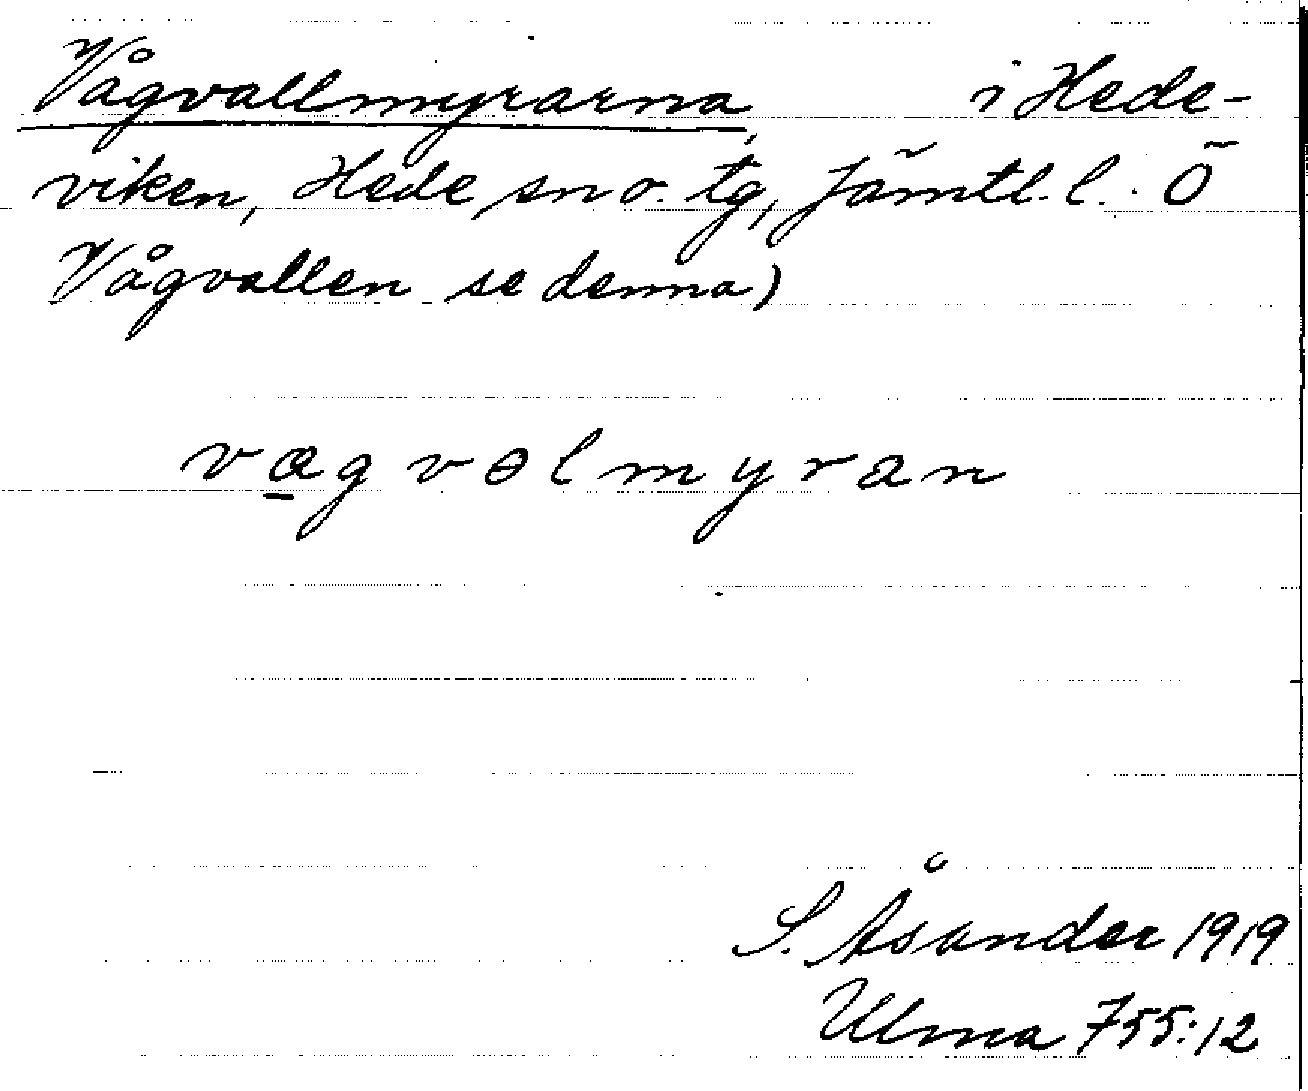 Vågvallmyrarna, i Hede-
viken, Hede sn o. tg, Jämtl. l. Ö
Vågvallen se denna)
vagvɵlmyran
S. Åsander 1919
Ulma 755:12